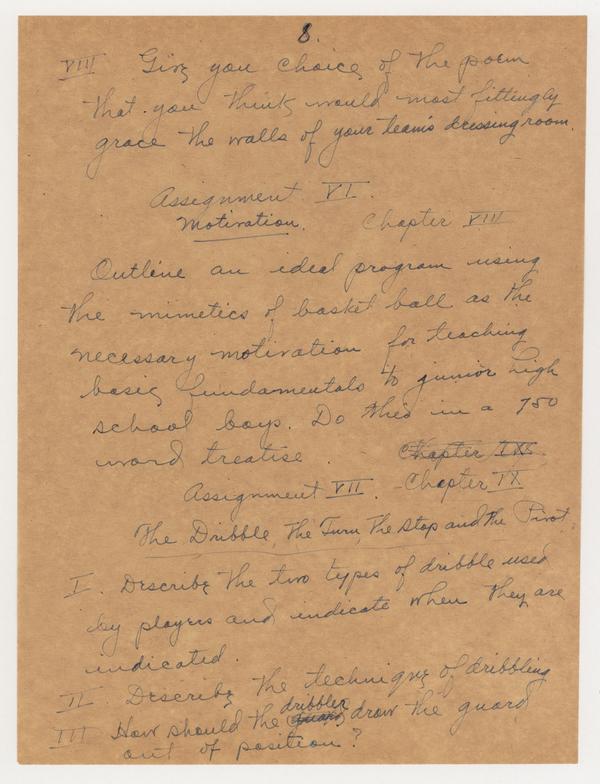 8.
VIII Give you choice of the poem
that you think would most fittingly
grace the walls of your team's dressing room.
Assignment VI.
Motivation. Chapter VIII
Outline an ideal program using
the mimetics of basket ball as the
necessary motivation for teaching
basic fundamentals to junior high
school boys. Do this in a 750
word treatise. Chapter IX.
Assignment VII. Chapter IX
The Dribble, The Turn, The Stop and the Pivot
I. Describe the two types of dribble used
by players and indicate when they are
indicated.
II Describe the technique of dribbling
III How should the dribbler draw the guard
out of position?